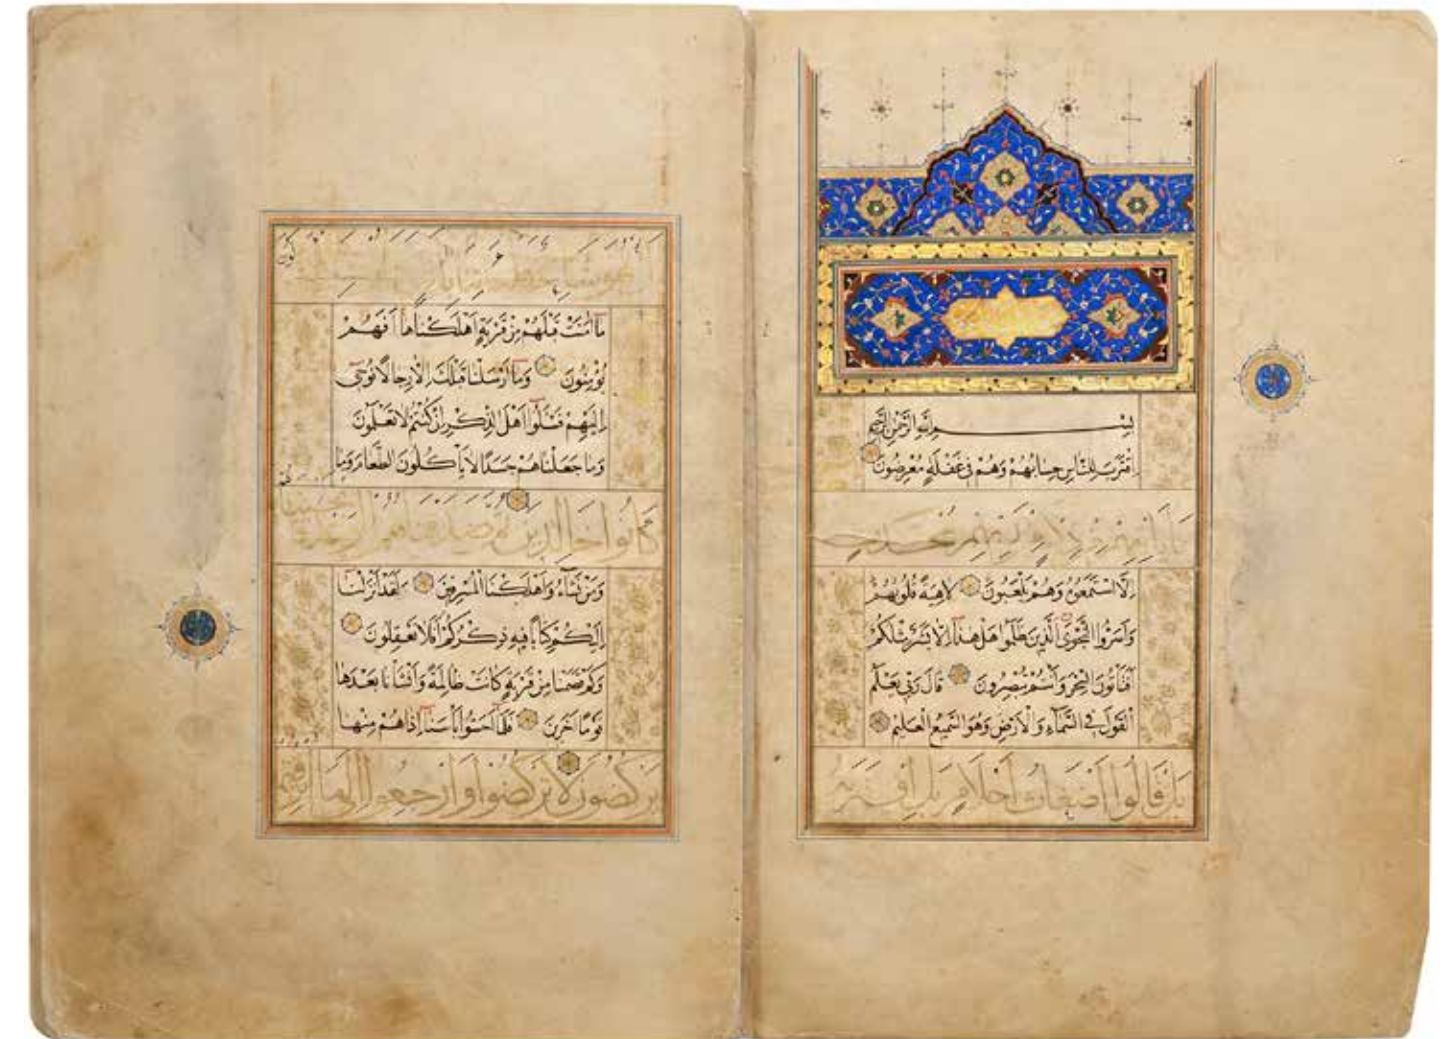 بِسْمِ اللهِ الرَّحْمٰنِ الرَّحِيمِ
اِقْتَرَبَ لِلنَّاسِ حِسَابُهُمْ وَهُمْ فِي غَفْلَةٍ مُعْرِضُونَ
مَا يَأْتِيهِمْ مِنْ ذِكْرٍ مِنْ رَبِّهِمْ مُحْدَثٍ
اِلَّا اسْتَمَعُوهُ وَهُمْ يَلْعَبُونَ لَاهِيَةً قُلُوبُهُمْ
وَاَسَرُّوا النَّجْوَى الَّذِينَ ظَلَمُوا هَلْ هٰذَا اِلَّا بَشَرٌ مِثْلُكُمْ
اَفَتَأْتُونَ السِّحْرَ وَاَنْتُمْ تُبْصِرُونَ قَالَ رَبِّي يَعْلَمُ
الْقَوْلَ فِي السَّمَاءِ وَالْاَرْضِ وَهُوَ السَّمِيعُ الْعَلِيمُ
بَلْ قَالُوا اَضْغَاثُ اَحْلَامٍ بَلِ افْتَرٰيهُ
هُوَ شَاعِرٌ
مَا اٰمَنَتْ قَبْلَهُمْ مِنْ قَرْيَةٍ اَهْلَكْنَاهَا اَفَهُمْ
يُؤْمِنُونَ وَمَا اَرْسَلْنَا قَبْلَكَ اِلَّا رِجَالًا نُوحِي
اِلَيْهِمْ فَسْئَلُوا اَهْلَ الذِّكْرِ اِنْ كُنْتُمْ لَا تَعْلَمُونَ
وَمَا جَعَلْنَاهُمْ جَسَدًا لَا يَأْكُلُونَ الطَّعَامَ وَمَا
كَانُوا خَالِدِينَ ثُمَّ صَدَقْنَاهُمُ الْوَعْدَ فَاَنْجَيْنَاهُمْ
وَمَنْ نَشَاءُ وَاَهْلَكْنَا الْمُسْرِفِينَ لَقَدْ اَنْزَلْنَا
اِلَيْكُمْ كِتَابًا فِيهِ ذِكْرُكُمْ اَفَلَا تَعْقِلُونَ
وَكَمْ قَصَمْنَا مِنْ قَرْيَةٍ كَانَتْ ظَالِمَةً وَاَنْشَأْنَا بَعْدَهَا
قَوْمًا اٰخَرِينَ فَلَمَّا اَحَسُّوا بَأْسَنَا اِذَا هُمْ مِنْهَا
يَرْكُضُونَ لَا تَرْكُضُوا وَارْجِعُوا اِلَى مَا